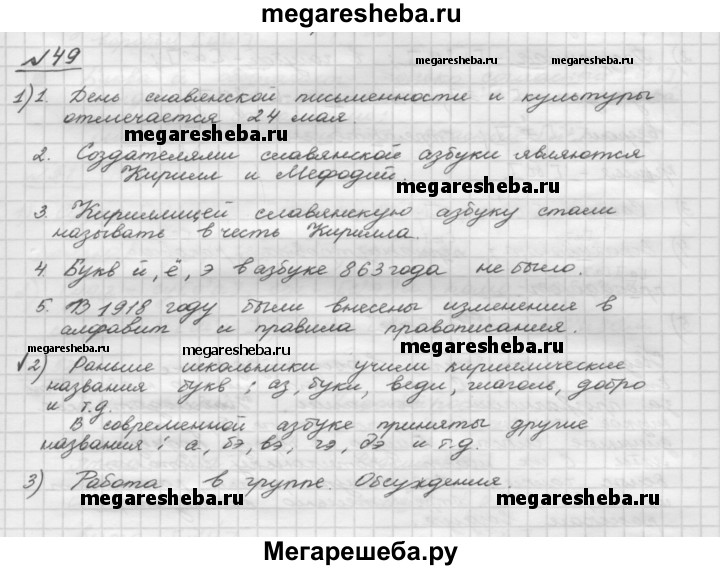 megaresheba.ru
№49
megaresheba.ru
megaresheba.ru
1) 1. День славянской письменности и культуры
отмечается 24 мая.
megaresheba.ru
2. Создателями славянской азбуки являются
Кирилл и Мефодий.
megaresheba.ru
3. Кириллицей славянскую азбуку стали
называть в честь Кирилла.
4. Букв й, ё, э в азбуке 863 года не было.
5. В 1918 году были внесены изменения в
алфавит и правила правописания.
megaresheba.ru
megaresheba.ru
megaresheba.ru
2) Раньше школьники учили кириллические
названия букв: аз, буки, веди, глаголь, добро
и т.д.
В современной азбуке приняты другие
названия: а, бэ, вэ, гэ, дэ и т.д.
3) Работа в группе. Обсуждения.
megaresheba.ru
megaresheba.ru
Мегарешеба.ру